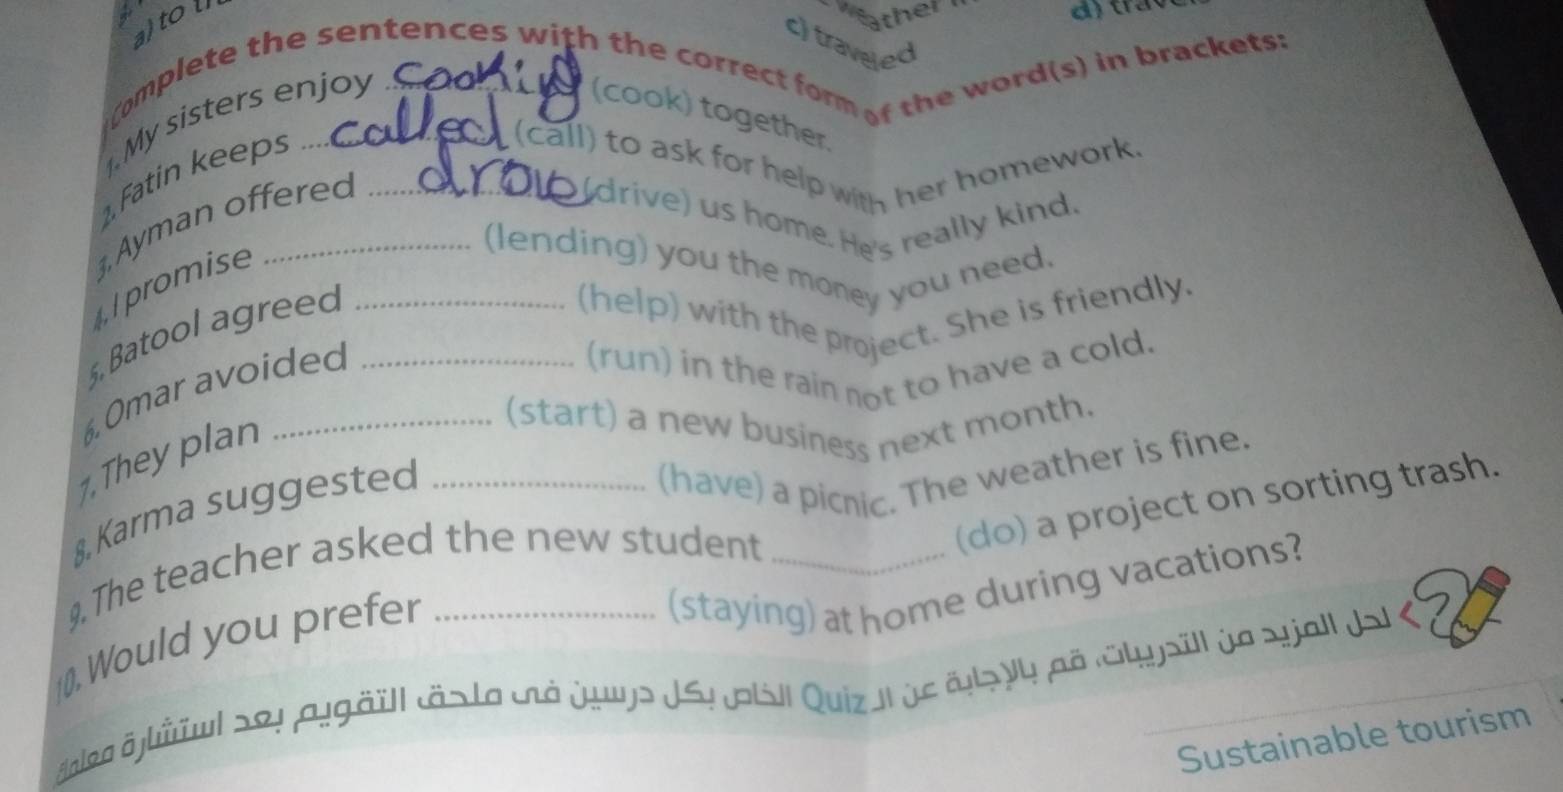 a) to
weather
c) traveled
d)
Complete the sentences with the correct form of the word(s) in brackets:
1. My sisters enjoy cooking (cook) together.
2. Fatin keeps called (call) to ask for help with her homework.
3. Ayman offered drove (drive) us home. He's really kind.
4. I promise (lending) you the money you need.
5. Batool agreed (help) with the project. She is friendly.
6. Omar avoided (run) in the rain not to have a cold.
7. They plan (start) a new business next month.
8. Karma suggested (have) a picnic. The weather is fine.
9. The teacher asked the new student (do) a project on sorting trash.
10. Would you prefer (staying) at home during vacations?
لحل المزيد من التدريبات، قم بالإجابة عن الـ Quiz الخاص بكل درس في ملحق التقويم بعد استشارة معلمك
Sustainable tourism